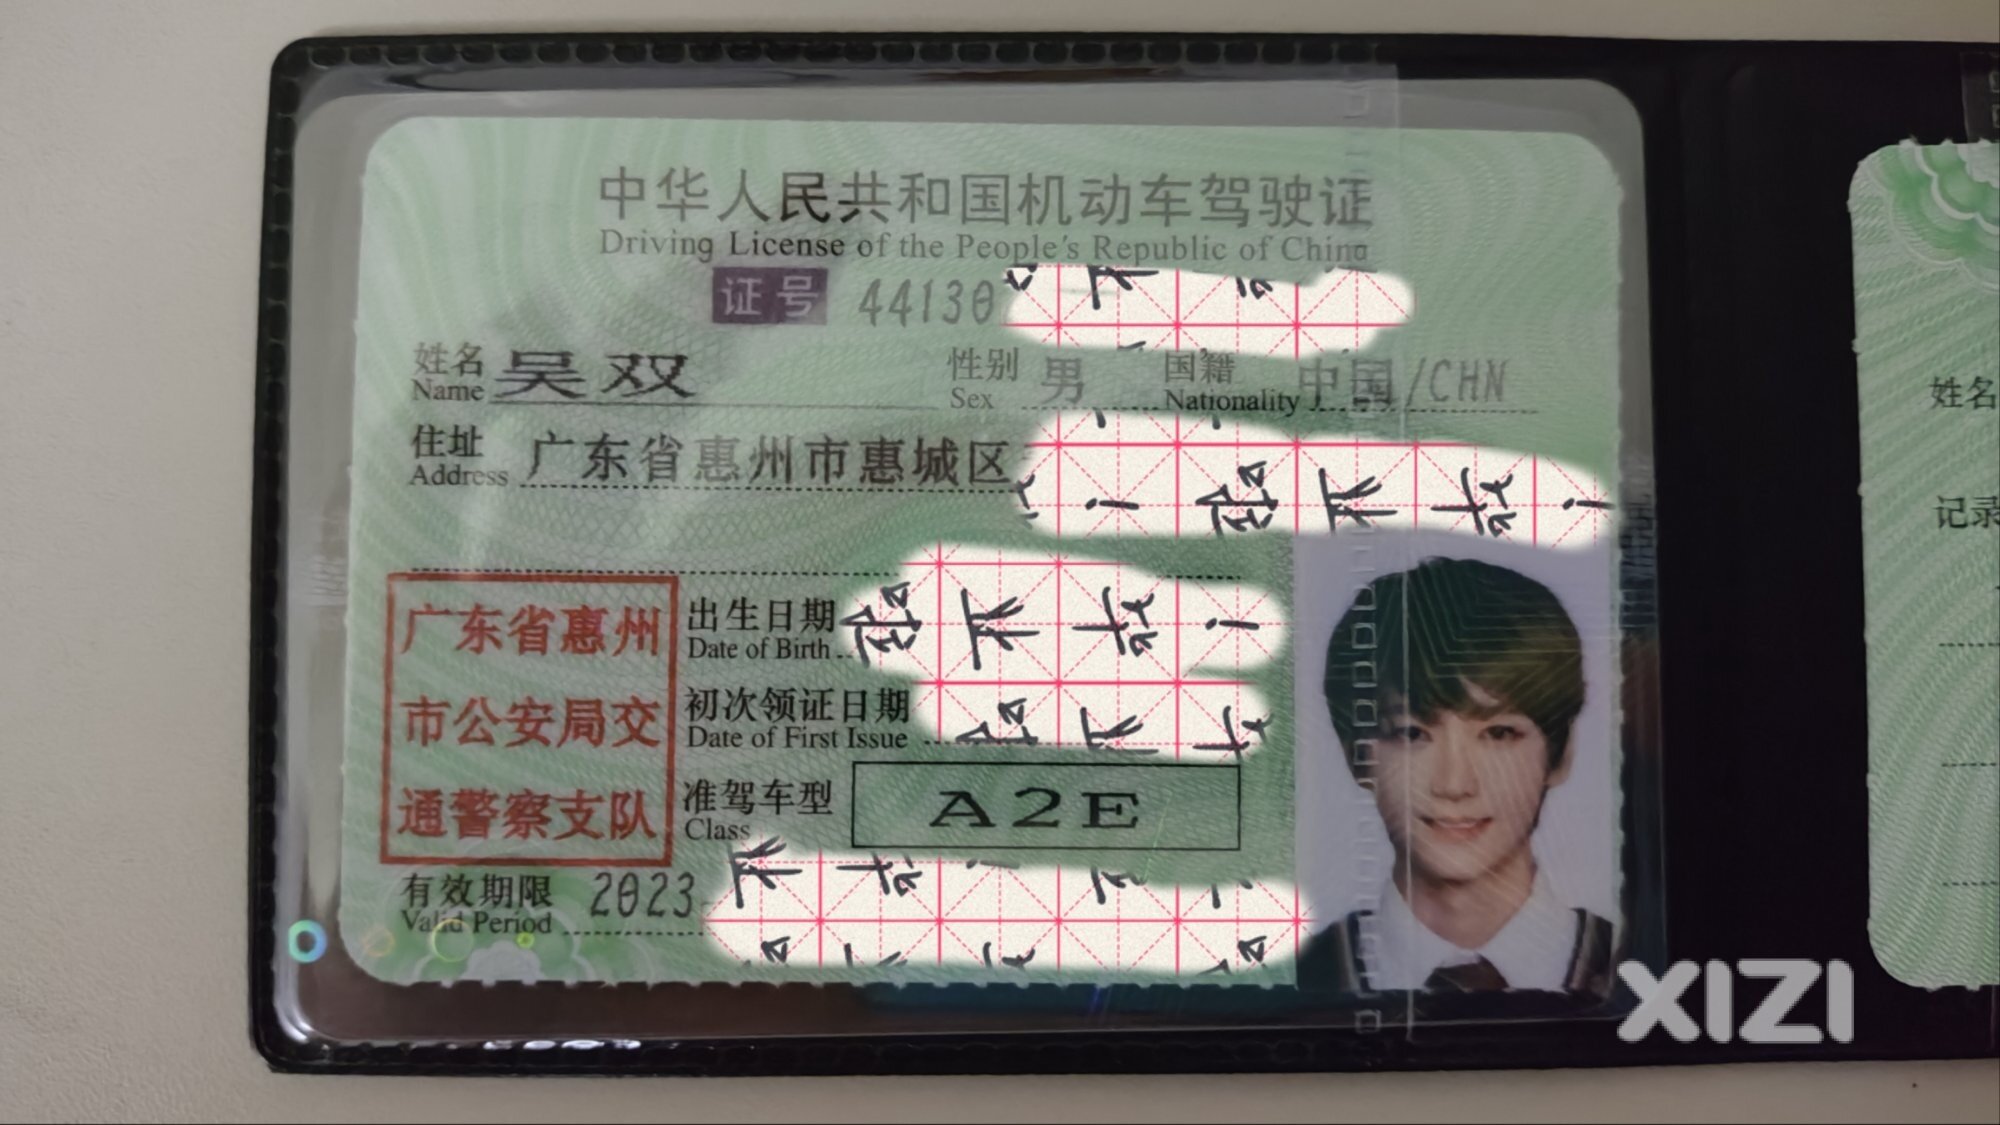 中华人民共和国机动车驾驶证
Driving License of the People's Republic of China
证号 44130
姓名 吴双 性别 男 国籍 中国/CHN
Name Sex Nationality
住址 广东省惠州市惠城区
Address
广东省惠州
市公安局交
通警察支队
出生日期
Date of Birth
初次领证日期
Date of First Issue
准驾车型 A2E
Class
有效期限 2023
Valid Period
姓名
记录
XIZI